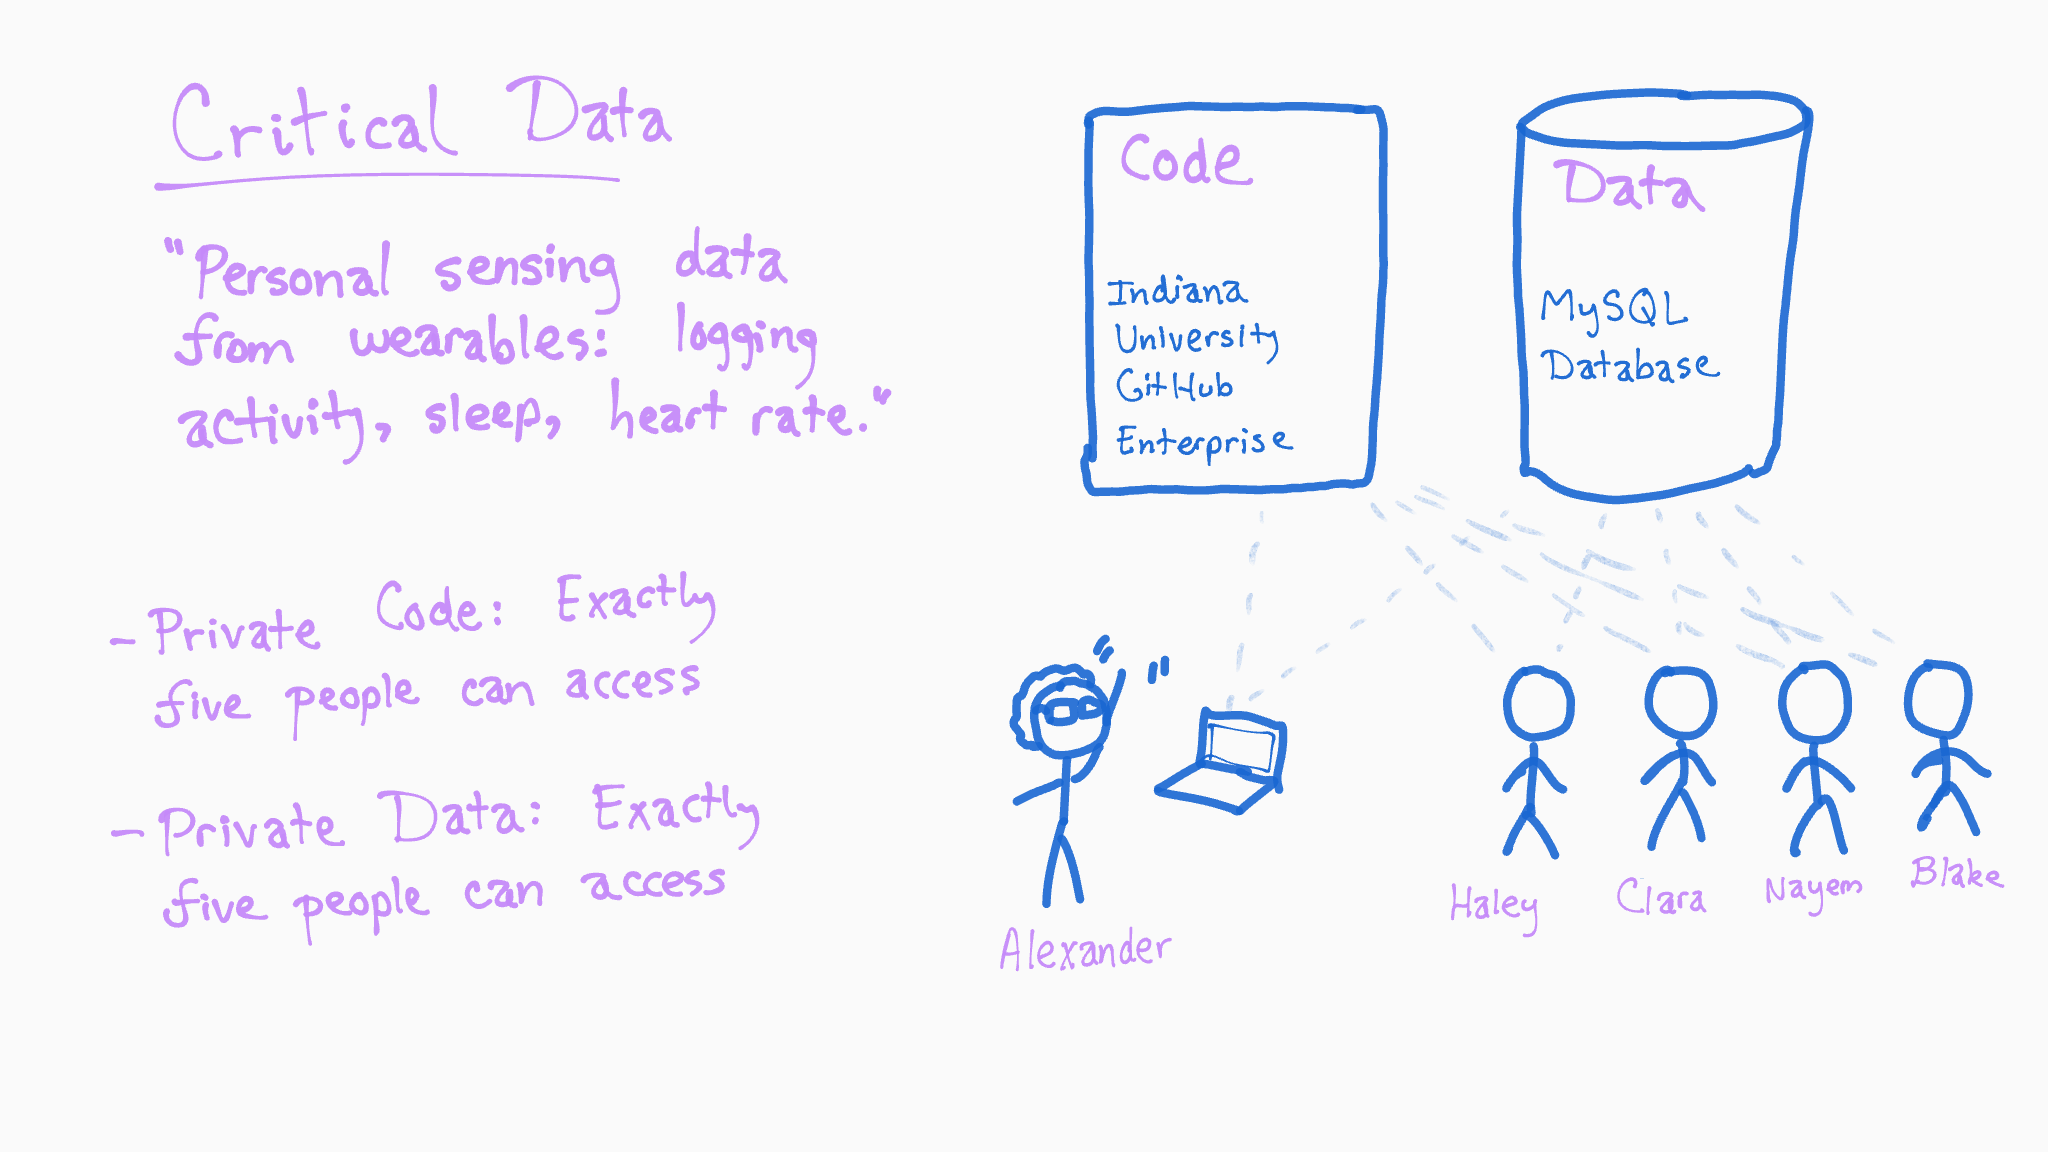 Critical Data
"Personal sensing data
from wearables: logging
activity, sleep, heart rate."
- Private Code: Exactly
five people can access
- Private Data: Exactly
five people can access
Code
Indiana
University
GitHub
Enterprise
Data
MySQL
Database
Alexander
Haley
Clara
Nayem
Blake